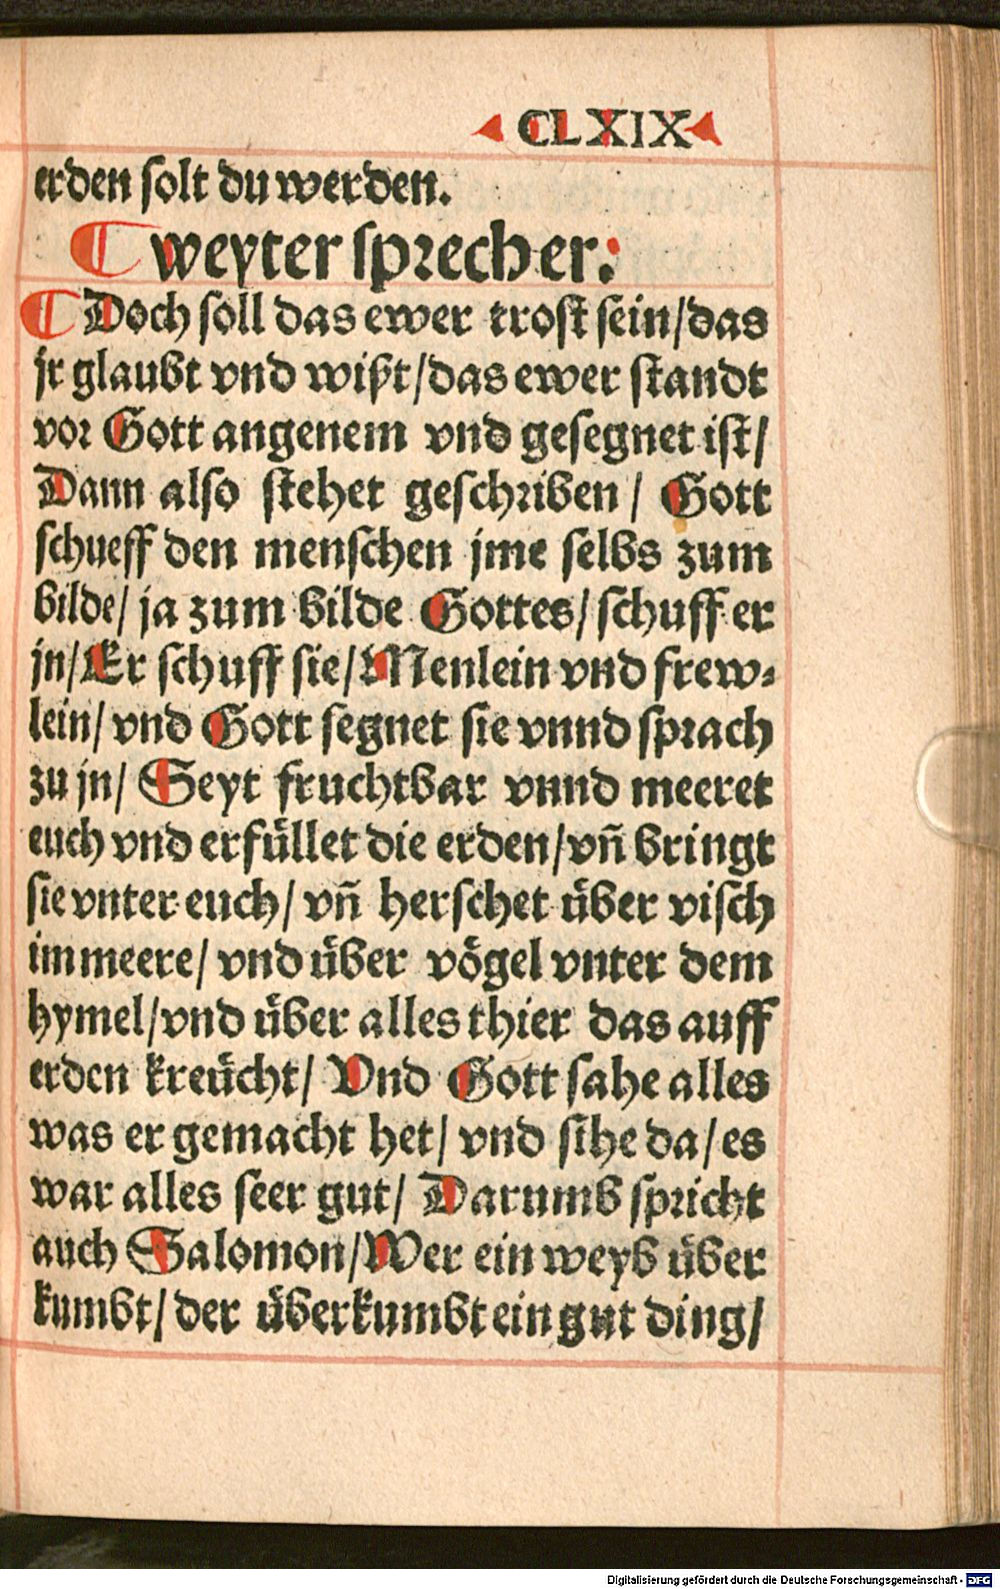 CLXIX
erden solt du werden.
¶ weyter sprecher:
¶ Doch soll das ewer trost sein/das
jr glaubt vnd wißt/das ewer standt
vor Gott angenem vnd gesegnet ist/
Dann also stehet geschriben/ Gott
schueff den menschen jme selbs zum
bilde/ ja zum bilde Gottes/ schuff er
jn/Er schuff sie/Menlein vnd frew⸗
lein/ vnd Gott segnet sie vnnd sprach
zu jn/ Seyt fruchtbar vnnd meeret
euch vnd erfüllet die erden/vñ bringt
sie vnter euch/ vñ herschet über visch
im meere/ vnd über vögel vnter dem
hymel/vnd über alles thier das auff
erden kreücht/ Vnd Gott sahe alles
was er gemacht het/ vnd sihe da/ es
war alles seer gut/ Darumb spricht
auch Salomon/Wer ein weyb über
kumbt/ der überkumbt ein gut ding/
Digitalisierung gefördert durch die Deutsche Forschungsgemeinschaft - DFG